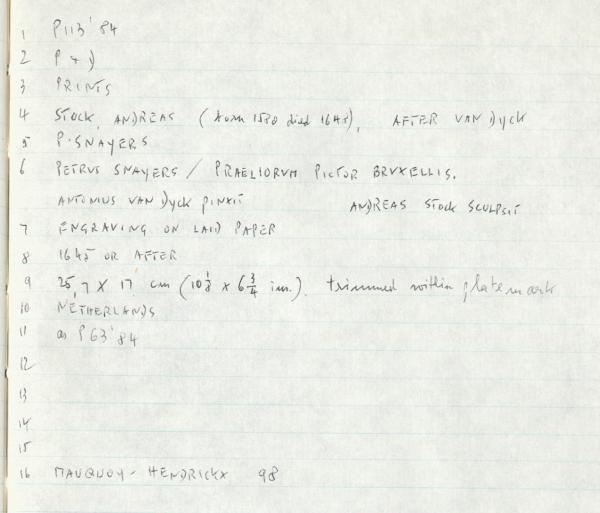 1 P113'84
2 P + D
3 PRINTS
4 STOCK, ANDREAS (born 1580 died 1648), AFTER VAN DYCK
5 P. SNAYERS
6 PETRUS SNAYERS / PRAELIORVM PICTOR BRVXELLIS.
ANTONIUS VAN DYCK PINXIT ANDREAS STOCK SCULPSIT
7 ENGRAVING ON LAID PAPER
8 1645 OR AFTER
9 25,7 X 17 cm (10 1/8 x 6 3/4 in.). trimmed within platemark
10 NETHERLANDS
11 as P63'84
12
13
14
15
16 MAUQUOY-HENDRICKX 98